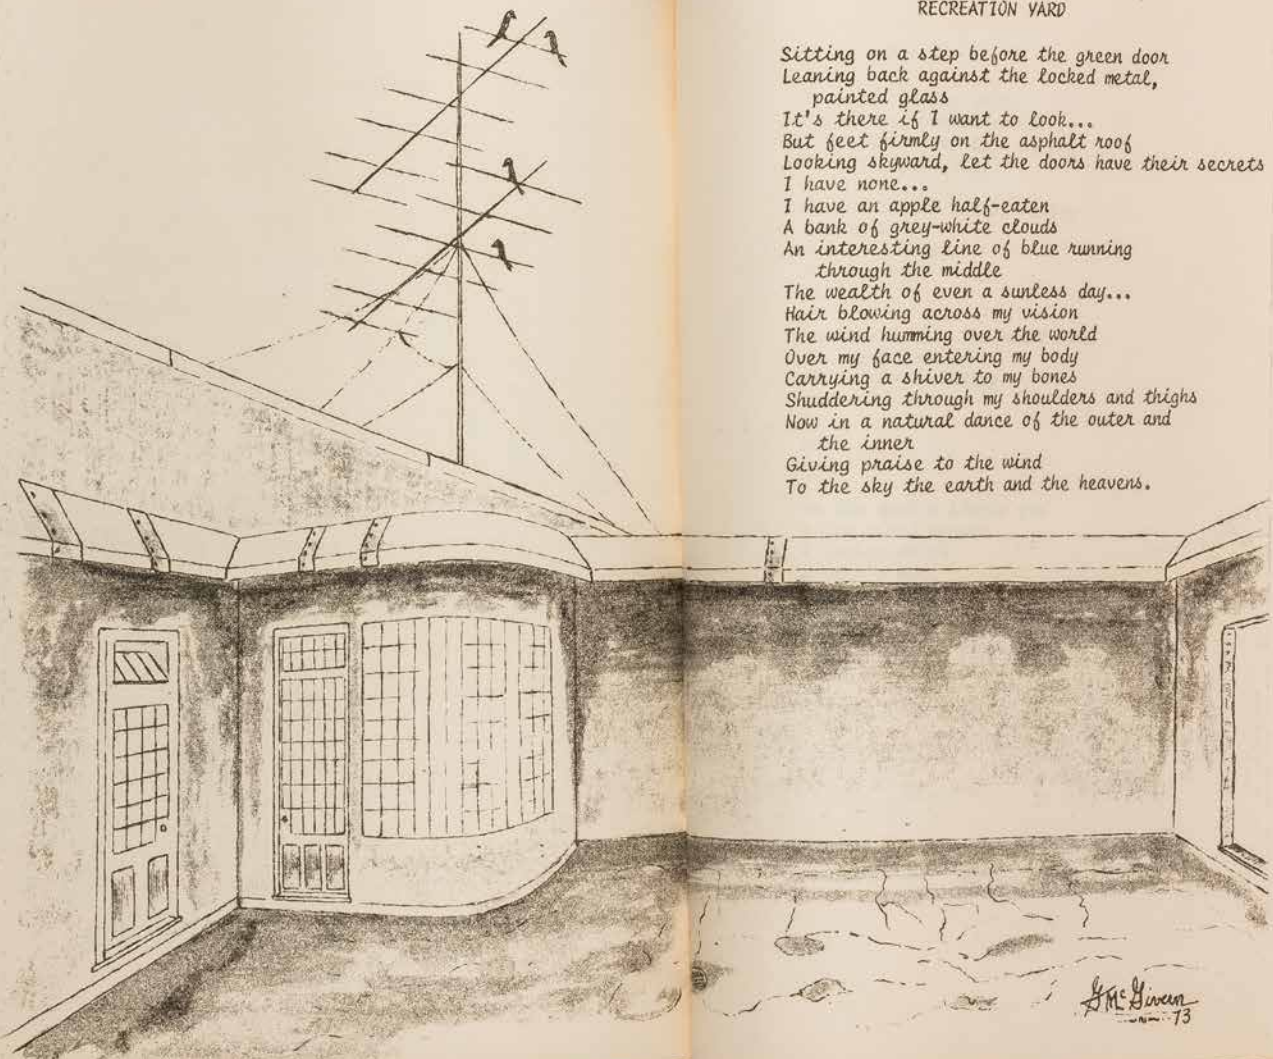 RECREATION YARD
Sitting on a step before the green door
Leaning back against the locked metal,
painted glass
It's there if I want to look...
But feet firmly on the asphalt roof
Looking skyward, let the doors have their secrets
I have none...
I have an apple half-eaten
A bank of grey-white clouds
An interesting line of blue running
through the middle
The wealth of even a sunless day...
Hair blowing across my vision
The wind humming over the world
Over my face entering my body
Carrying a shiver to my bones
Shuddering through my shoulders and thighs
Now in a natural dance of the outer and
the inner
Giving praise to the wind
To the sky the earth and the heavens.
G McGivern
73